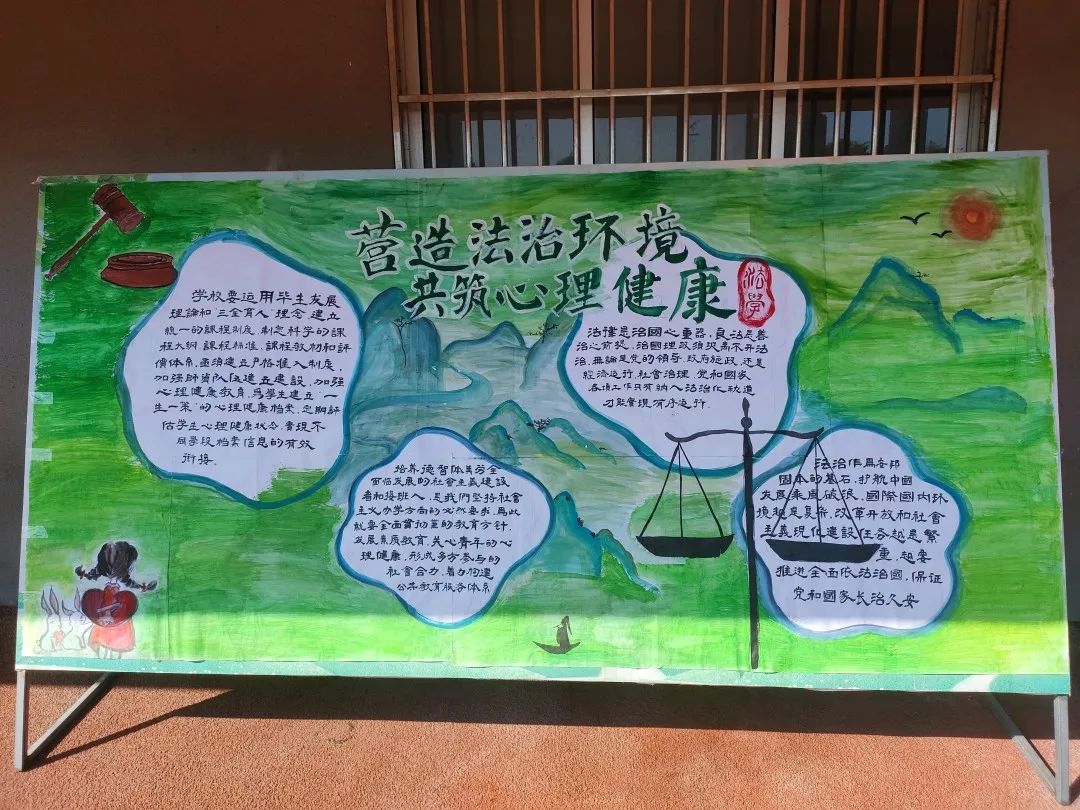 营造法治环境
共筑心理健康
法學
学校要运用毕生发展
理論和"三全育人"理念 建立
統一的課程制度,制定科学的課
程大纲 課程标准、課程教材和评
價体系,亟須建立严格准入制度,
加强師資队伍建設,加强
心理健康教育,爲学生建立"一
生一策"的心理健康档案,定期评
估学生心理健康狀令,實現不
同学段档案信息的有效
衔接.
法律是治國之重器,良法是善
治之前提.治國理政須臾离不开法
治,無論是党的領导 政府施政,还是
經濟运行,社會治理,党和國家
各項工作只有納入法治化轨道
才能實現有序运行.
培养德智体美劳全
面临发展的社會主義建設
者和接班人,是我們坚持社會
主义办学方向的必然要求,爲此
就要全面貫彻党的教育方针,
发展素质教育,关心青年的心
理健康,形成多方参与的
社會合力,着力构建
公共教育服务体系
法治作爲吾邦
固本的基石,护航中國
发展乘風破浪,國際國内环
境越是复杂,改革开放和社會
主義現代化建設任务越是繁
重,越要
推进全面依法治國,保证
党和國家长治久安